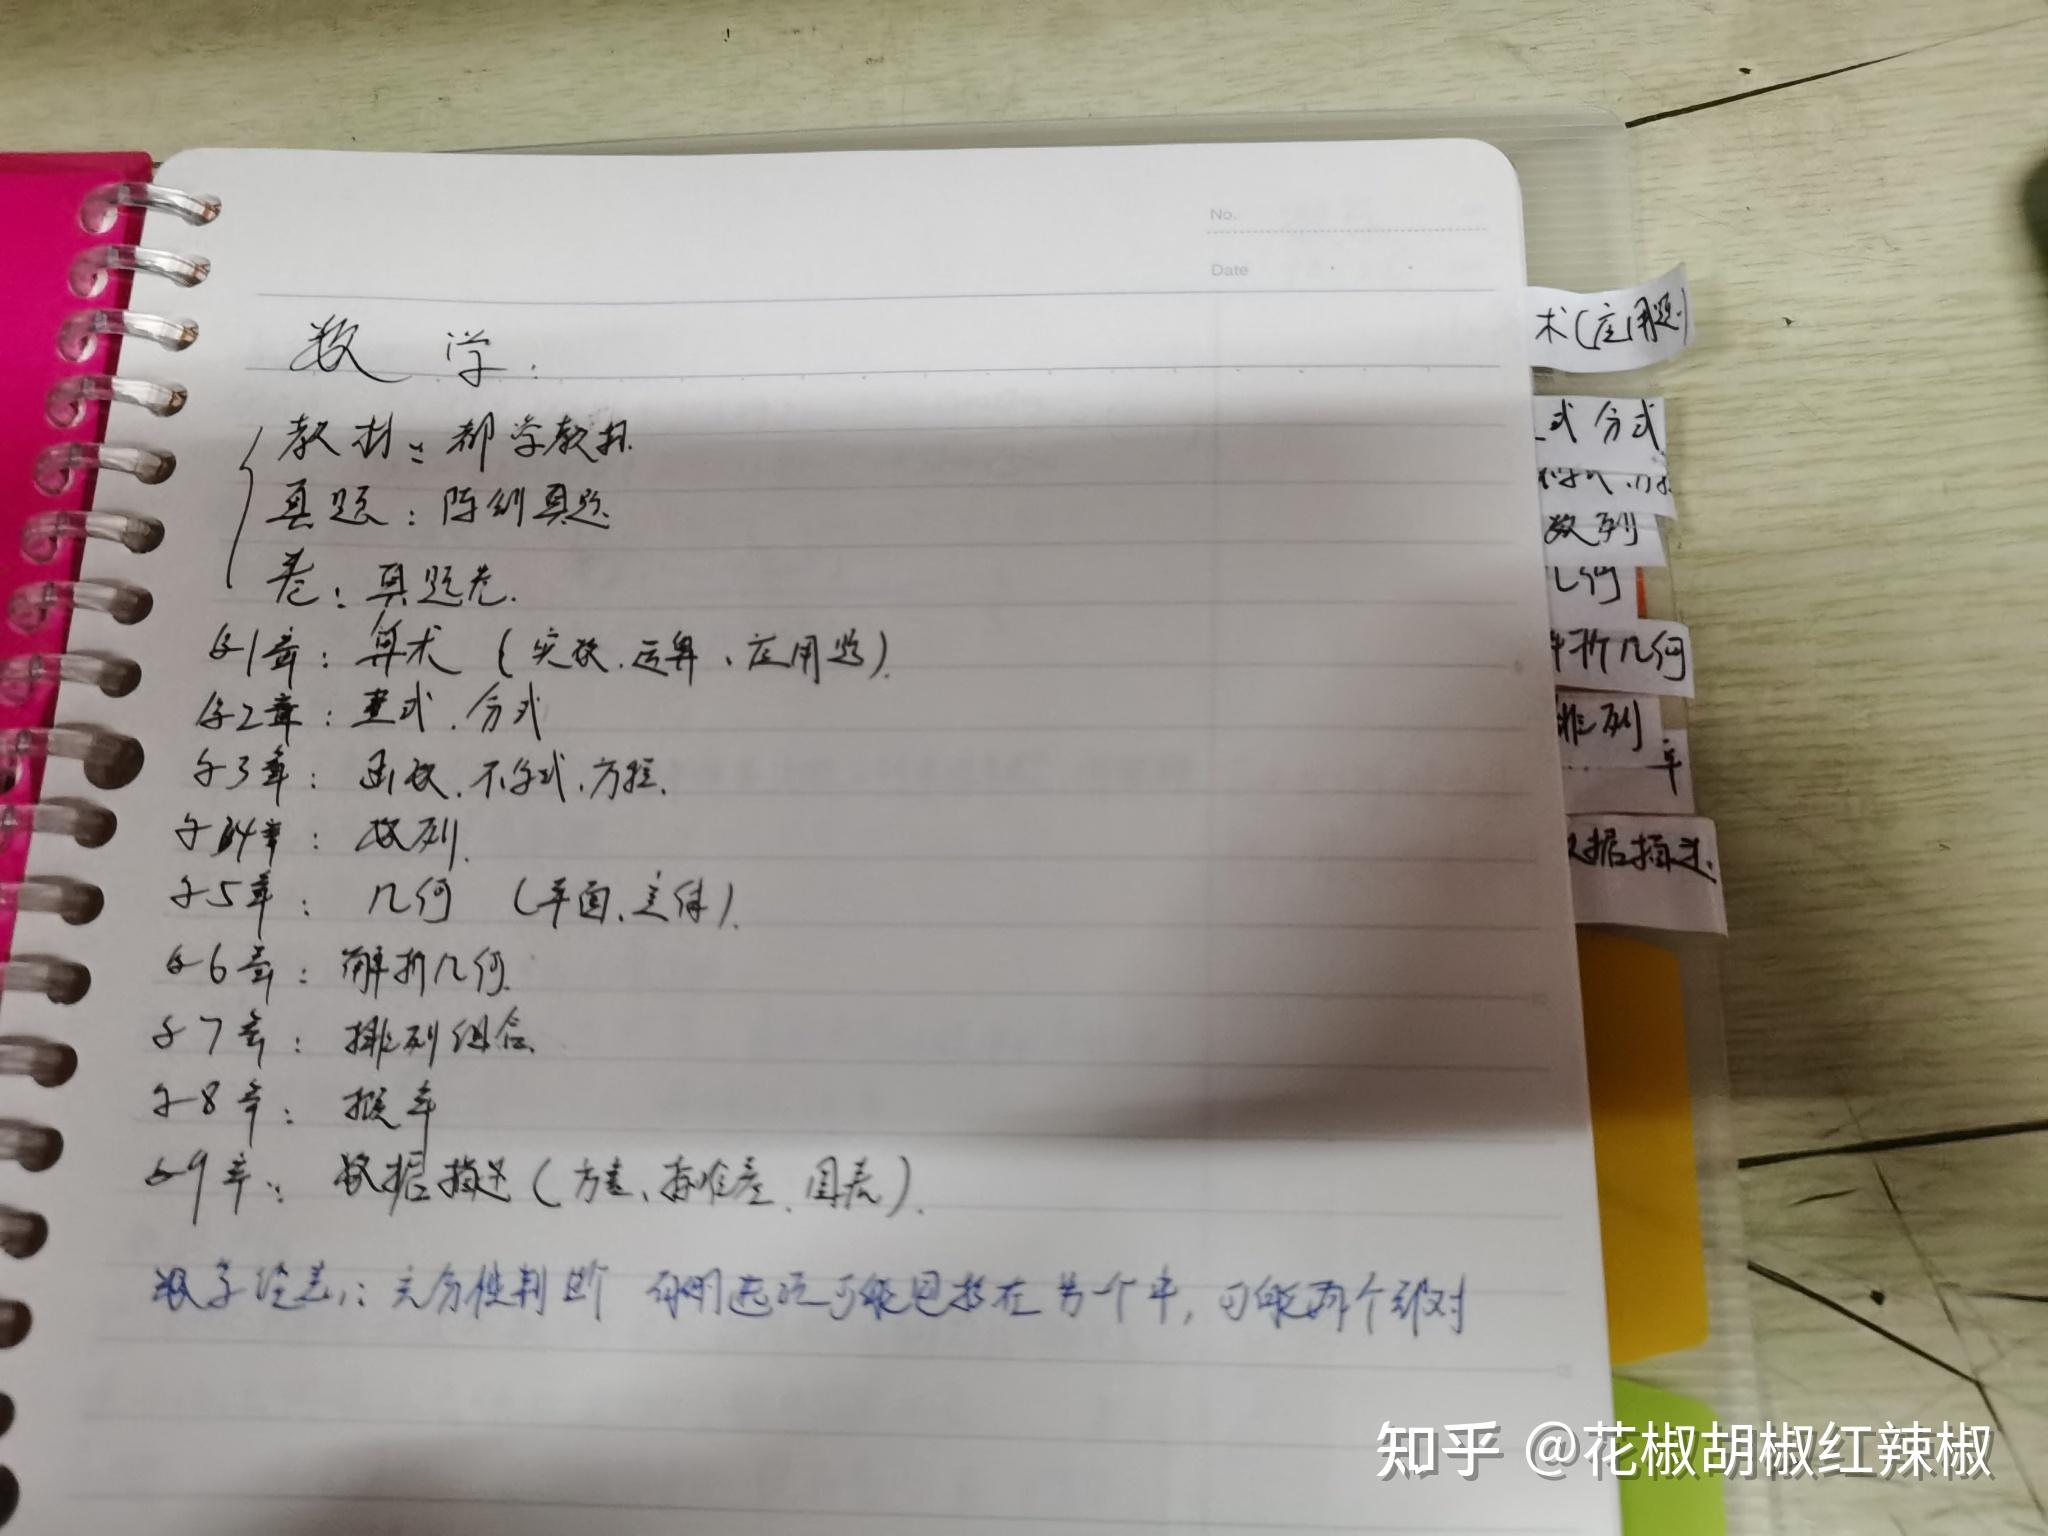 No.
Date
数学:
教材:都学教材.
真题:陈剑真题
卷:真题卷.
第1章:算术(实数、运算、应用题).
第2章:整式、分式
第3章:函数、不等式、方程.
第4章:数列.
第5章:几何(平面、立体).
第6章:解析几何.
第7章:排列组合.
第8章:概率
第9章:数据描述(方差、标准差、图表).
充分性判断 有时选项可能包括在另一个中,可能两个都对
术(应用题)
式 分式
数列
几何
解析几何
排列
率
数据描述.
知乎 @花椒胡椒红辣椒